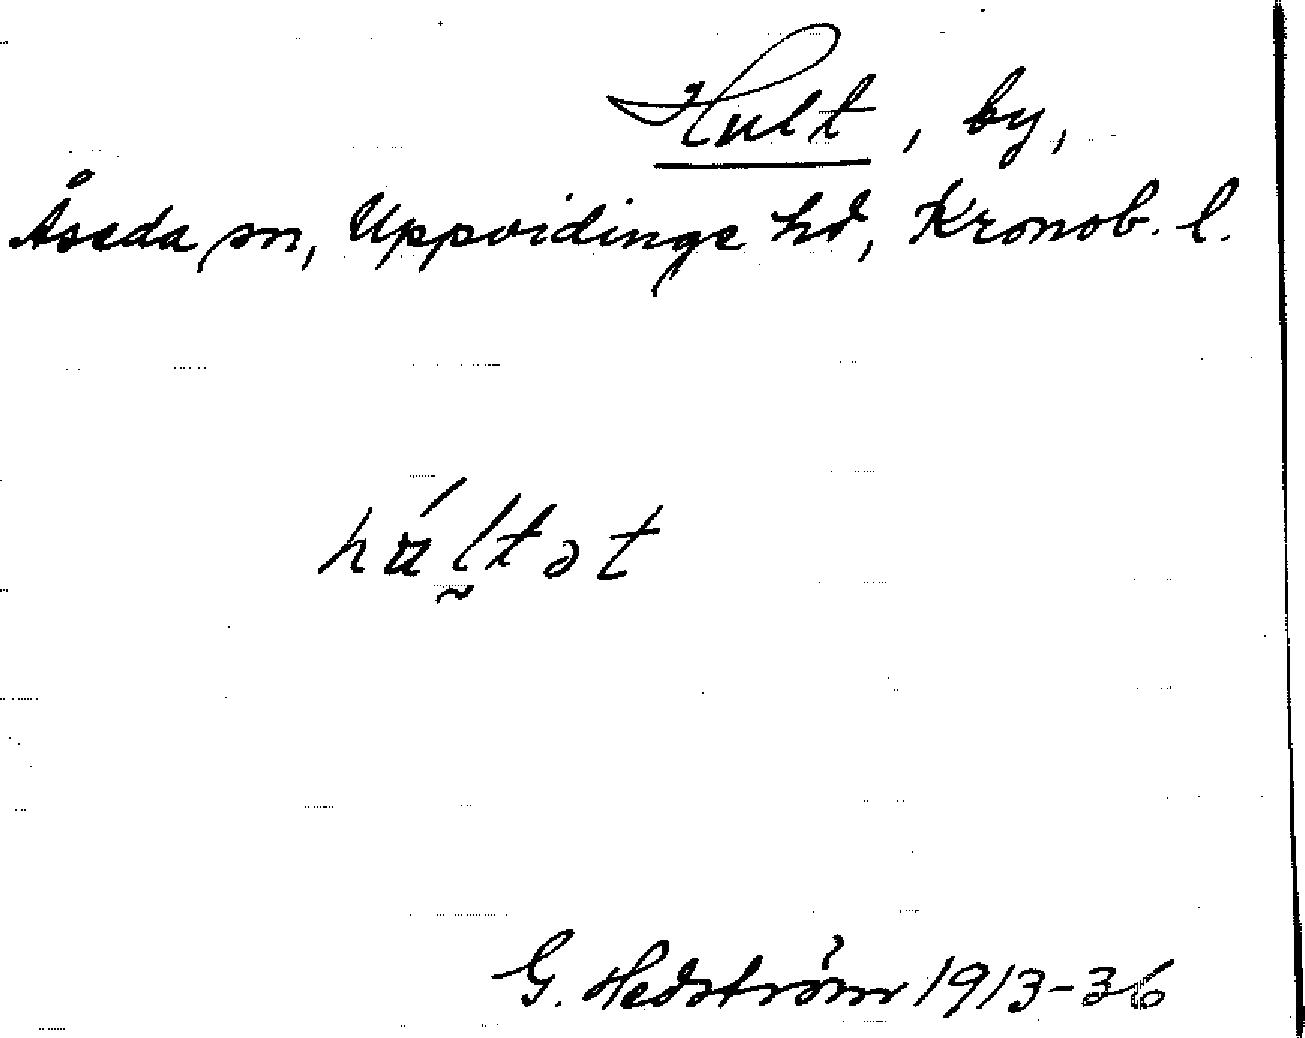 Hult, by,
Åseda sn, Uppvidinge hd, Kronob. l.
G. Hedström 1913-36